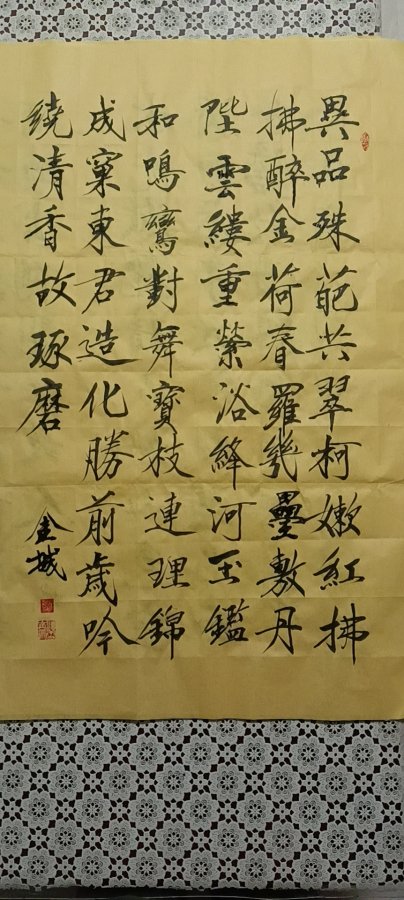 異品殊葩共翠柯嫩紅拂
拂醉金荷春羅幾疊敷丹
陛雲縷重縈浴絳河玉鑑
和鳴鸞對舞寶枝連理錦
成窠東君造化勝前歲吟
繞清香故琢磨
金城